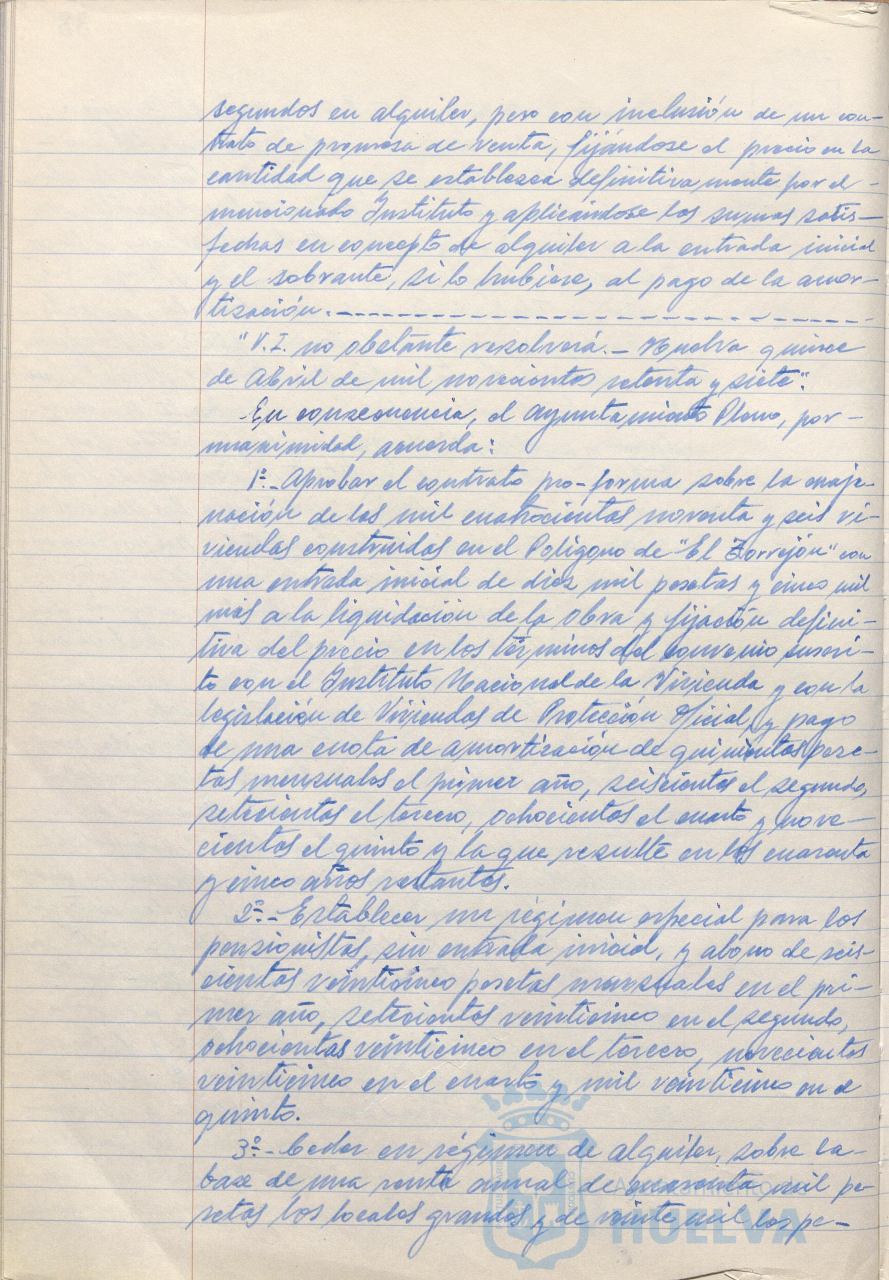 segundos en alquiler, pero con inclusión de un con-
trato de promesa de venta, fijándose el precio en la
cantidad que se establezca definitivamente por el -
mencionado Instituto y aplicándose las sumas satis-
fechas en concepto de alquiler a la entrada inicial
y el sobrante, si lo hubiere, al pago de la amor-
tización.-
"V.I. no obstante resolverá.- Huelva quince
de Abril de mil novecientos setenta y siete".
En consecuencia, el Ayuntamiento Pleno, por -
unanimidad, acuerda:
1º.- Aprobar el contrato pro-forma sobre la enaje-
nación de las mil cuatrocientas noventa y seis vi-
viendas construidas en el Polígono de "El Torrejón" con
una entrada inicial de diez mil pesetas y cinco mil
más a la liquidación de la obra y fijación defini-
tiva del precio en los términos del convenio suscri-
to con el Instituto Nacional de la Vivienda y con la
legislación de Viviendas de Protección Oficial, y pago
de una cuota de amortización de quinientas pese-
tas mensuales el primer año, seiscientas el segundo,
setecientas el tercero, ochocientas el cuarto y nove-
cientas el quinto y la que resulte en los cuarenta
y cinco años restantes.
2º.- Establecer un régimen especial para los
pensionistas, sin entrada inicial, y abono de seis-
cientas veinticinco pesetas mensuales en el pri-
mer año, setecientas veinticinco en el segundo,
ochocientas veinticinco en el tercero, novecientas
veinticinco en el cuarto y mil veinticinco en el
quinto.
3º.- Ceder en régimen de alquiler, sobre la-
base de una renta anual de cuarenta mil pe-
setas los locales grandes y de veinte mil los pe-
Ayuntamiento de
HUELVA